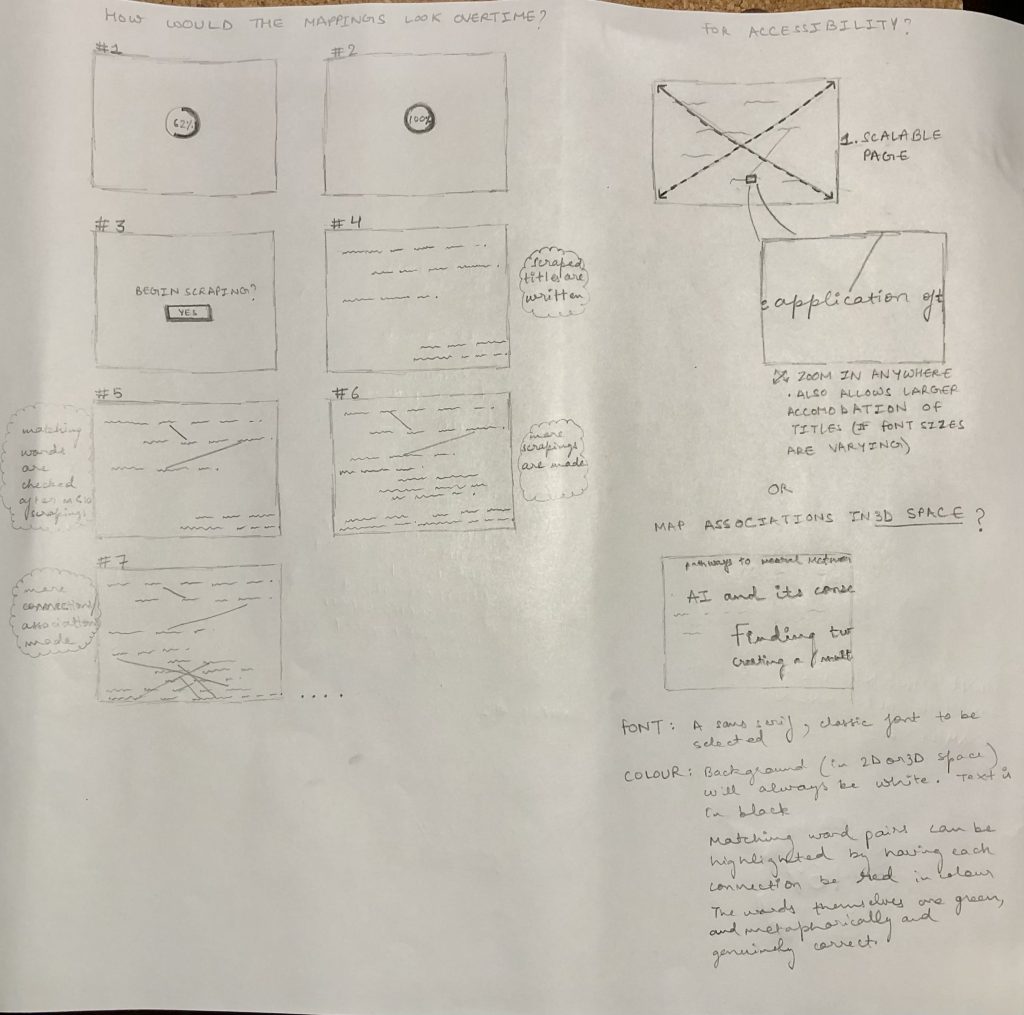 HOW WOULD THE MAPPINGS LOOK OVERTIME?
#1
62%
#2
100%
#3
BEGIN SCRAPING?
YES
#4
scraped
titles are
written
#5
matching
words
are
checked
after
scrapings
#6
more
scrapings
are made
#7
more
connections/
association
made
....
FOR ACCESSIBILITY?
1. SCALABLE
PAGE
application of
ZOOM IN ANYWHERE
• ALSO ALLOWS LARGER
ACCOMODATION OF
TITLES (IF FONT SIZES
ARE VARYING)
OR
MAP ASSOCIATIONS IN 3D SPACE?
pathways to neural networ
AI and its conse
Finding tw
creating a
FONT: A sans serif, classic font to be
selected
COLOUR: Background (in 2D or 3D space)
will always be white. Text is
in black
Matching word pairs can be
highlighted by having each
connection be red in colour
The words themselves are green,
and metaphorically and
genuinely correct.